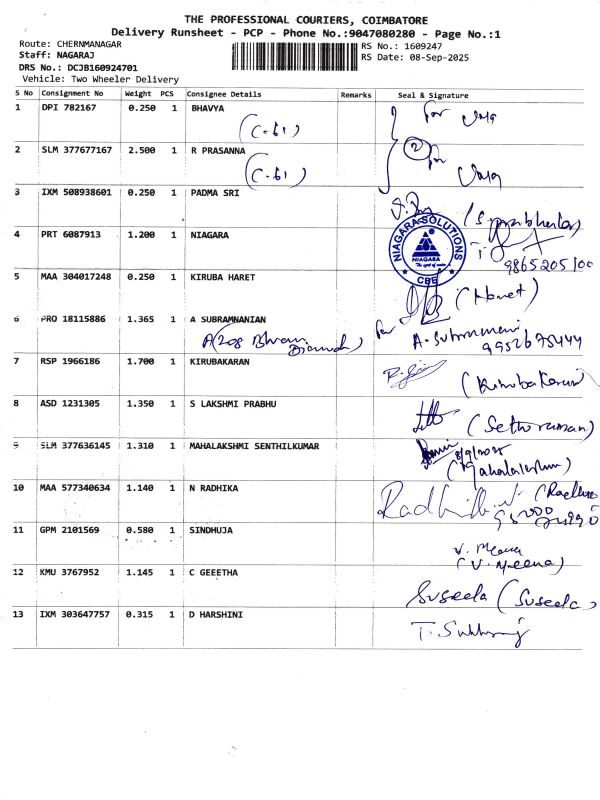 THE PROFESSIONAL COURIERS, COIMBATORE
Delivery Runsheet - PCP - Phone No.:9047080280 - Page No.:1
Route: CHERNMANAGAR RS No.: 1609247
Staff: NAGARAJ RS Date: 08-Sep-2025
DRS No.: DCJB160924701
Vehicle: Two Wheeler Delivery
S No Consignment No Weight PCS Consignee Details Remarks Seal & Signature
1 DPI 782167 0.250 1 BHAVYA for Uma
(C-61)
2 SLM 377677167 2.500 1 R PRASANNA (2) for
(C-61) Uma
3 IXM 508938601 0.250 1 PADMA SRI
(S. prabhakar)
4 PRT 6087913 1.200 1 NIAGARA
NIAGARA SOLUTIONS
NIAGARA
CBE
9865205100
5 MAA 304017248 0.250 1 KIRUBA HARET (Haret)
6 PRO 18115886 1.365 1 A SUBRAMNANIAN for A. Subramani
A(208 9952675444
7 RSP 1966186 1.700 1 KIRUBAKARAN
(Kirubakaran)
8 ASD 1231305 1.350 1 S LAKSHMI PRABHU
(Sethuraman)
9 SLM 377636145 1.310 1 MAHALAKSHMI SENTHILKUMAR 8/9/2025
(Mahalakshmi)
10 MAA 577340634 1.140 1 N RADHIKA Radhika. N (Radhika
11 GPM 2101569 0.580 1 SINDHUJA
V. Meena
(V. Meena)
12 KMU 3767952 1.145 1 C GEEETHA
Suseela (Suseela)
13 IXM 303647757 0.315 1 D HARSHINI
T. Subbaraj